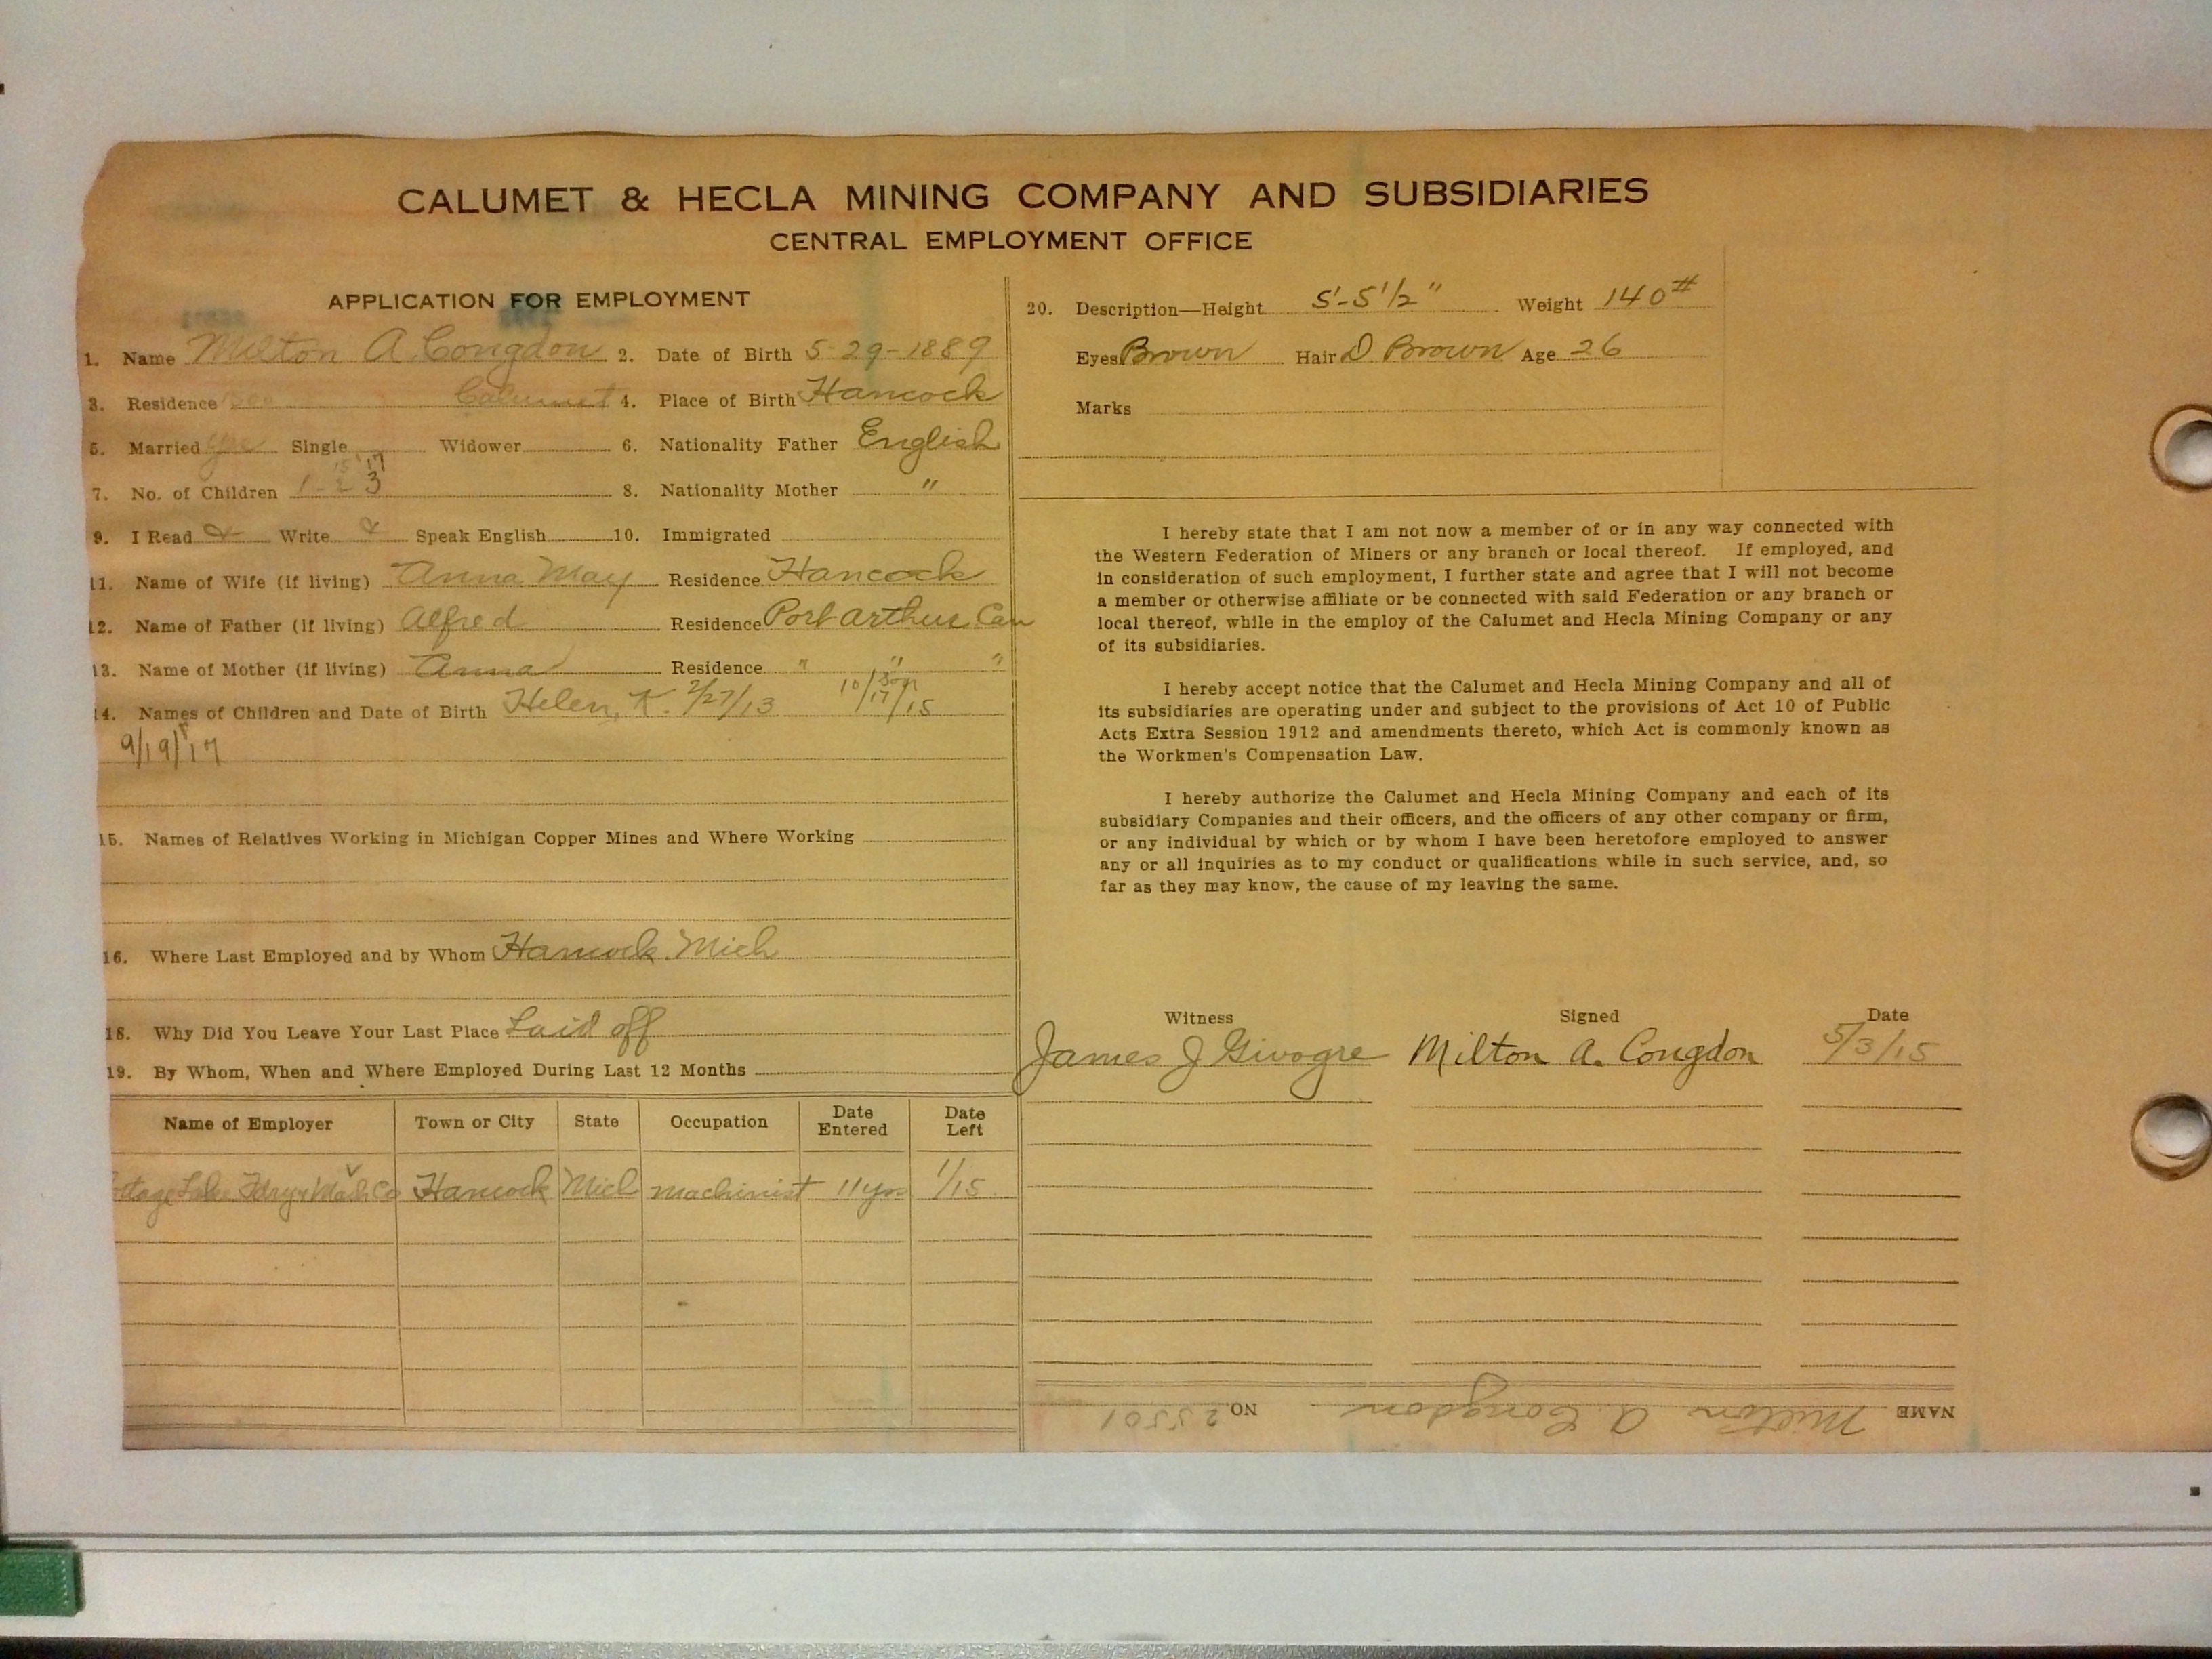 CALUMET & HECLA MINING COMPANY AND SUBSIDIARIES
CENTRAL EMPLOYMENT OFFICE
APPLICATION FOR EMPLOYMENT
1. Name Milton A. Congdon 2. Date of Birth 5-29-1889
3. Residence Calumet 4. Place of Birth Hancock
5. Married yes Single Widower 6. Nationality Father English
15 17
7. No. of Children 1-2 3 8. Nationality Mother "
9. I Read Write Speak English 10. Immigrated
11. Name of Wife (if living) Anna May Residence Hancock
12. Name of Father (if living) Alfred Residence Port Arthur, Can
13. Name of Mother (if living) Anna Residence " " "
14. Names of Children and Date of Birth Helen, K. 2/27/13 son 10/17/15
9/19/17
15. Names of Relatives Working in Michigan Copper Mines and Where Working
16. Where Last Employed and by Whom Hancock. Mich
18. Why Did You Leave Your Last Place Laid off
19. By Whom, When and Where Employed During Last 12 Months
Name of Employer Town or City State Occupation Date Entered Date Left
Lake Fdry & Mach Co Hancock Mich machinist 11 yrs 1/15
20. Description—Height 5'-5 1/2" Weight 140#
Eyes Brown Hair D Brown Age 26
Marks
I hereby state that I am not now a member of or in any way connected with
the Western Federation of Miners or any branch or local thereof. If employed, and
in consideration of such employment, I further state and agree that I will not become
a member or otherwise affiliate or be connected with said Federation or any branch or
local thereof, while in the employ of the Calumet and Hecla Mining Company or any
of its subsidiaries.
I hereby accept notice that the Calumet and Hecla Mining Company and all of
its subsidiaries are operating under and subject to the provisions of Act 10 of Public
Acts Extra Session 1912 and amendments thereto, which Act is commonly known as
the Workmen's Compensation Law.
I hereby authorize the Calumet and Hecla Mining Company and each of its
subsidiary Companies and their officers, and the officers of any other company or firm,
or any individual by which or by whom I have been heretofore employed to answer
any or all inquiries as to my conduct or qualifications while in such service, and, so
far as they may know, the cause of my leaving the same.
Witness Signed Date
James J Givogre Milton A. Congdon 5/3/15
NAME Milton A. Congdon NO. 25501